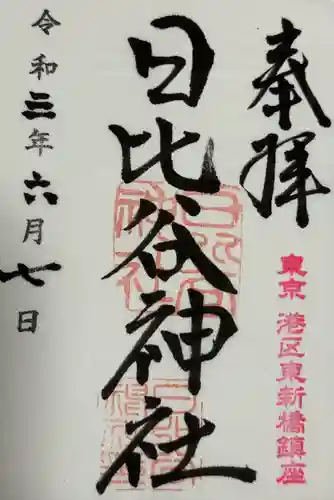 奉拝
東京 港区東新橋鎮座
日比谷神社
令和三年六月七日